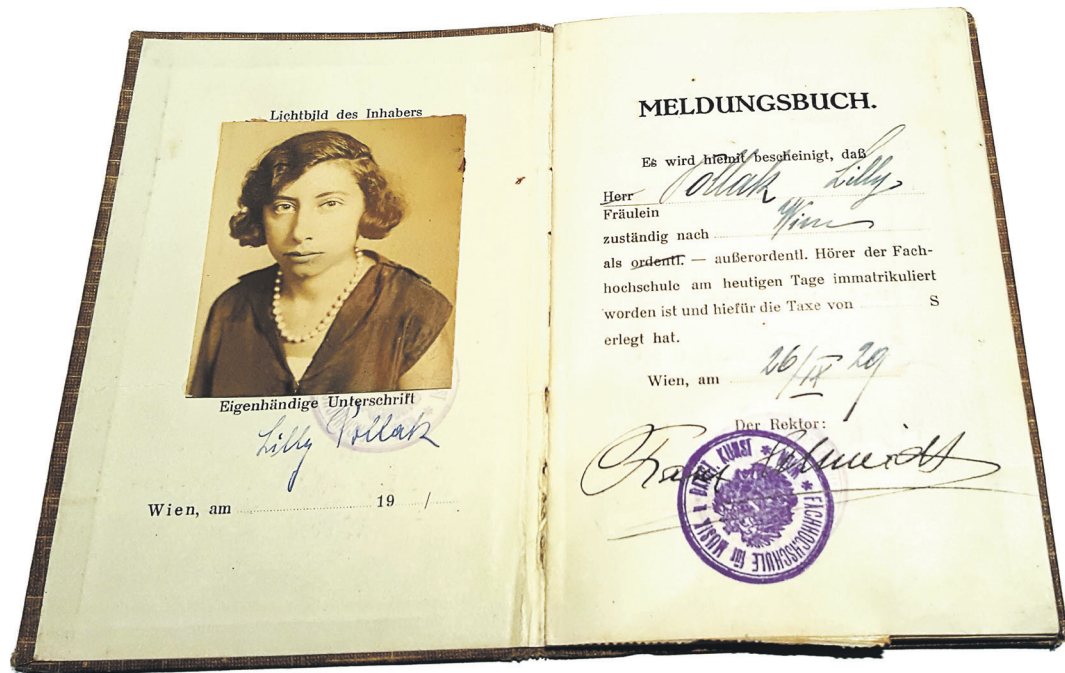 Lichtbild des Inhabers
Eigenhändige Unterschrift
Lilly Pollak
Wien, am 19 /
MELDUNGSBUCH.
Es wird hiemit bescheinigt, daß
Herr Pollak Lilly
Fräulein
zuständig nach Wien
als ordentl. — außerordentl. Hörer der Fach-
hochschule am heutigen Tage immatrikuliert
worden ist und hiefür die Taxe von S
erlegt hat.
Wien, am 26/IX 29
Der Rektor:
Franz Schmidt
FACHHOCHSCHULE für MUSIK u. DARST. KUNST * WIEN *